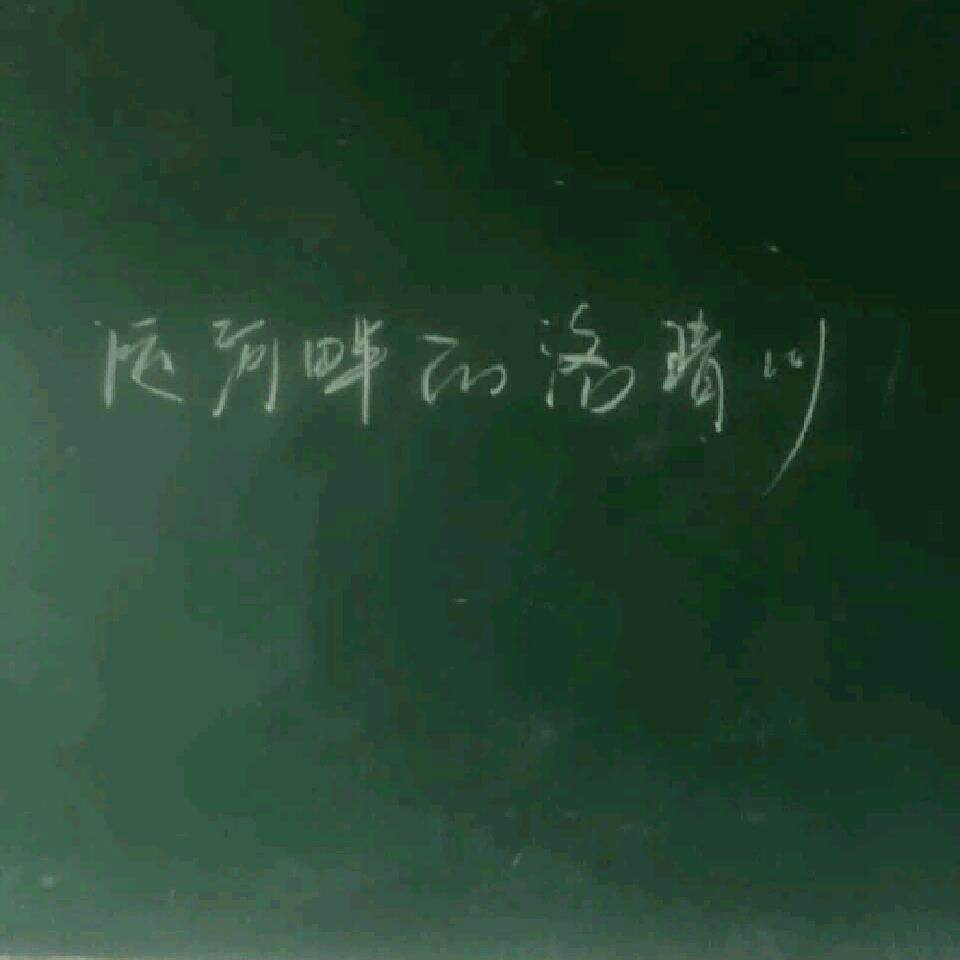 河畔的洛晴川